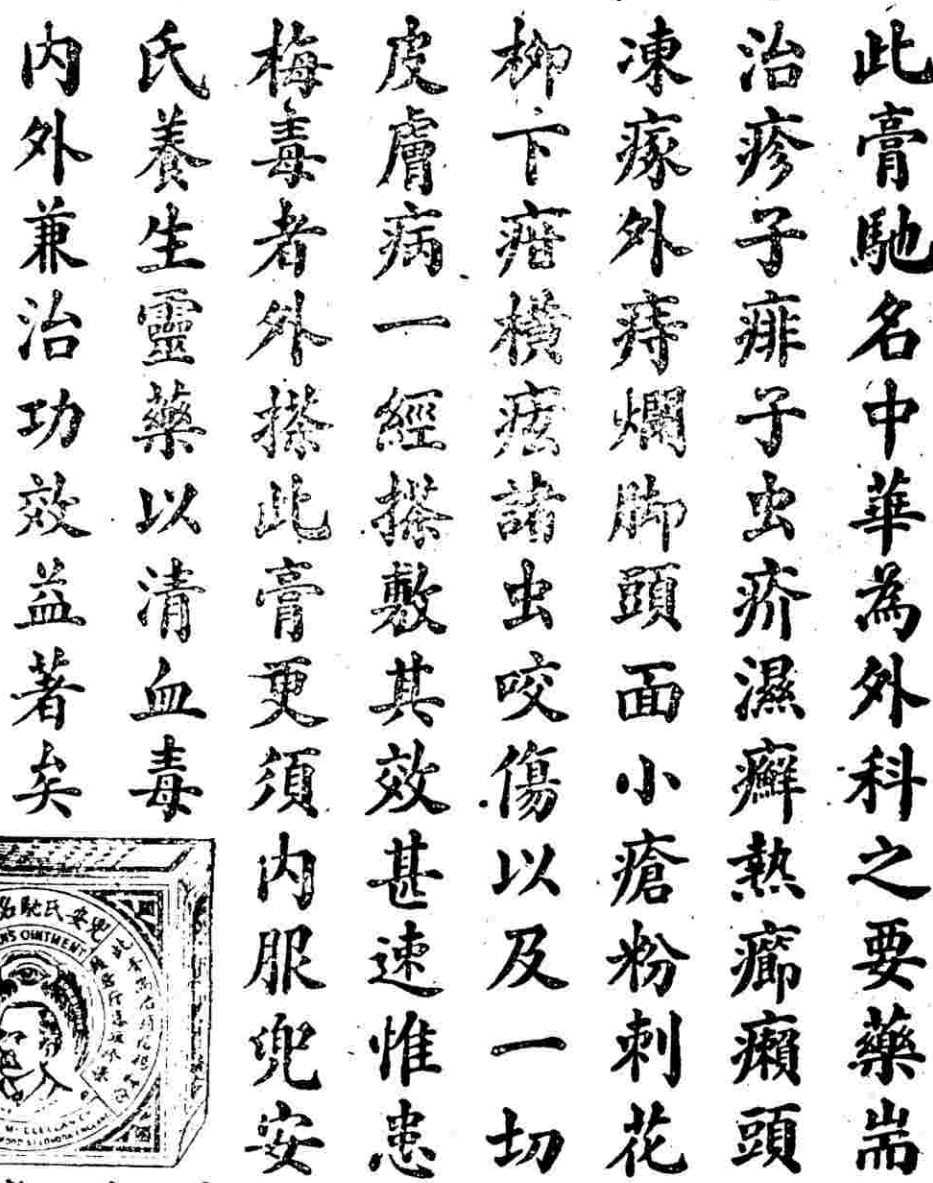 此膏馳名中華為外科之要藥耑
治疹子痱子虫疥濕癬熱癤癩頭
凍瘃外痔爛脚頭面小瘡粉刺花
柳下疳橫痃諸虫咬傷以及一切
皮膚病一經搽敷其效甚速惟患
梅毒者外搽此膏更須内服兜安
氏養生靈藥以清血毒
内外兼治功效益著矣
兜安氏馳名
OINTMENT